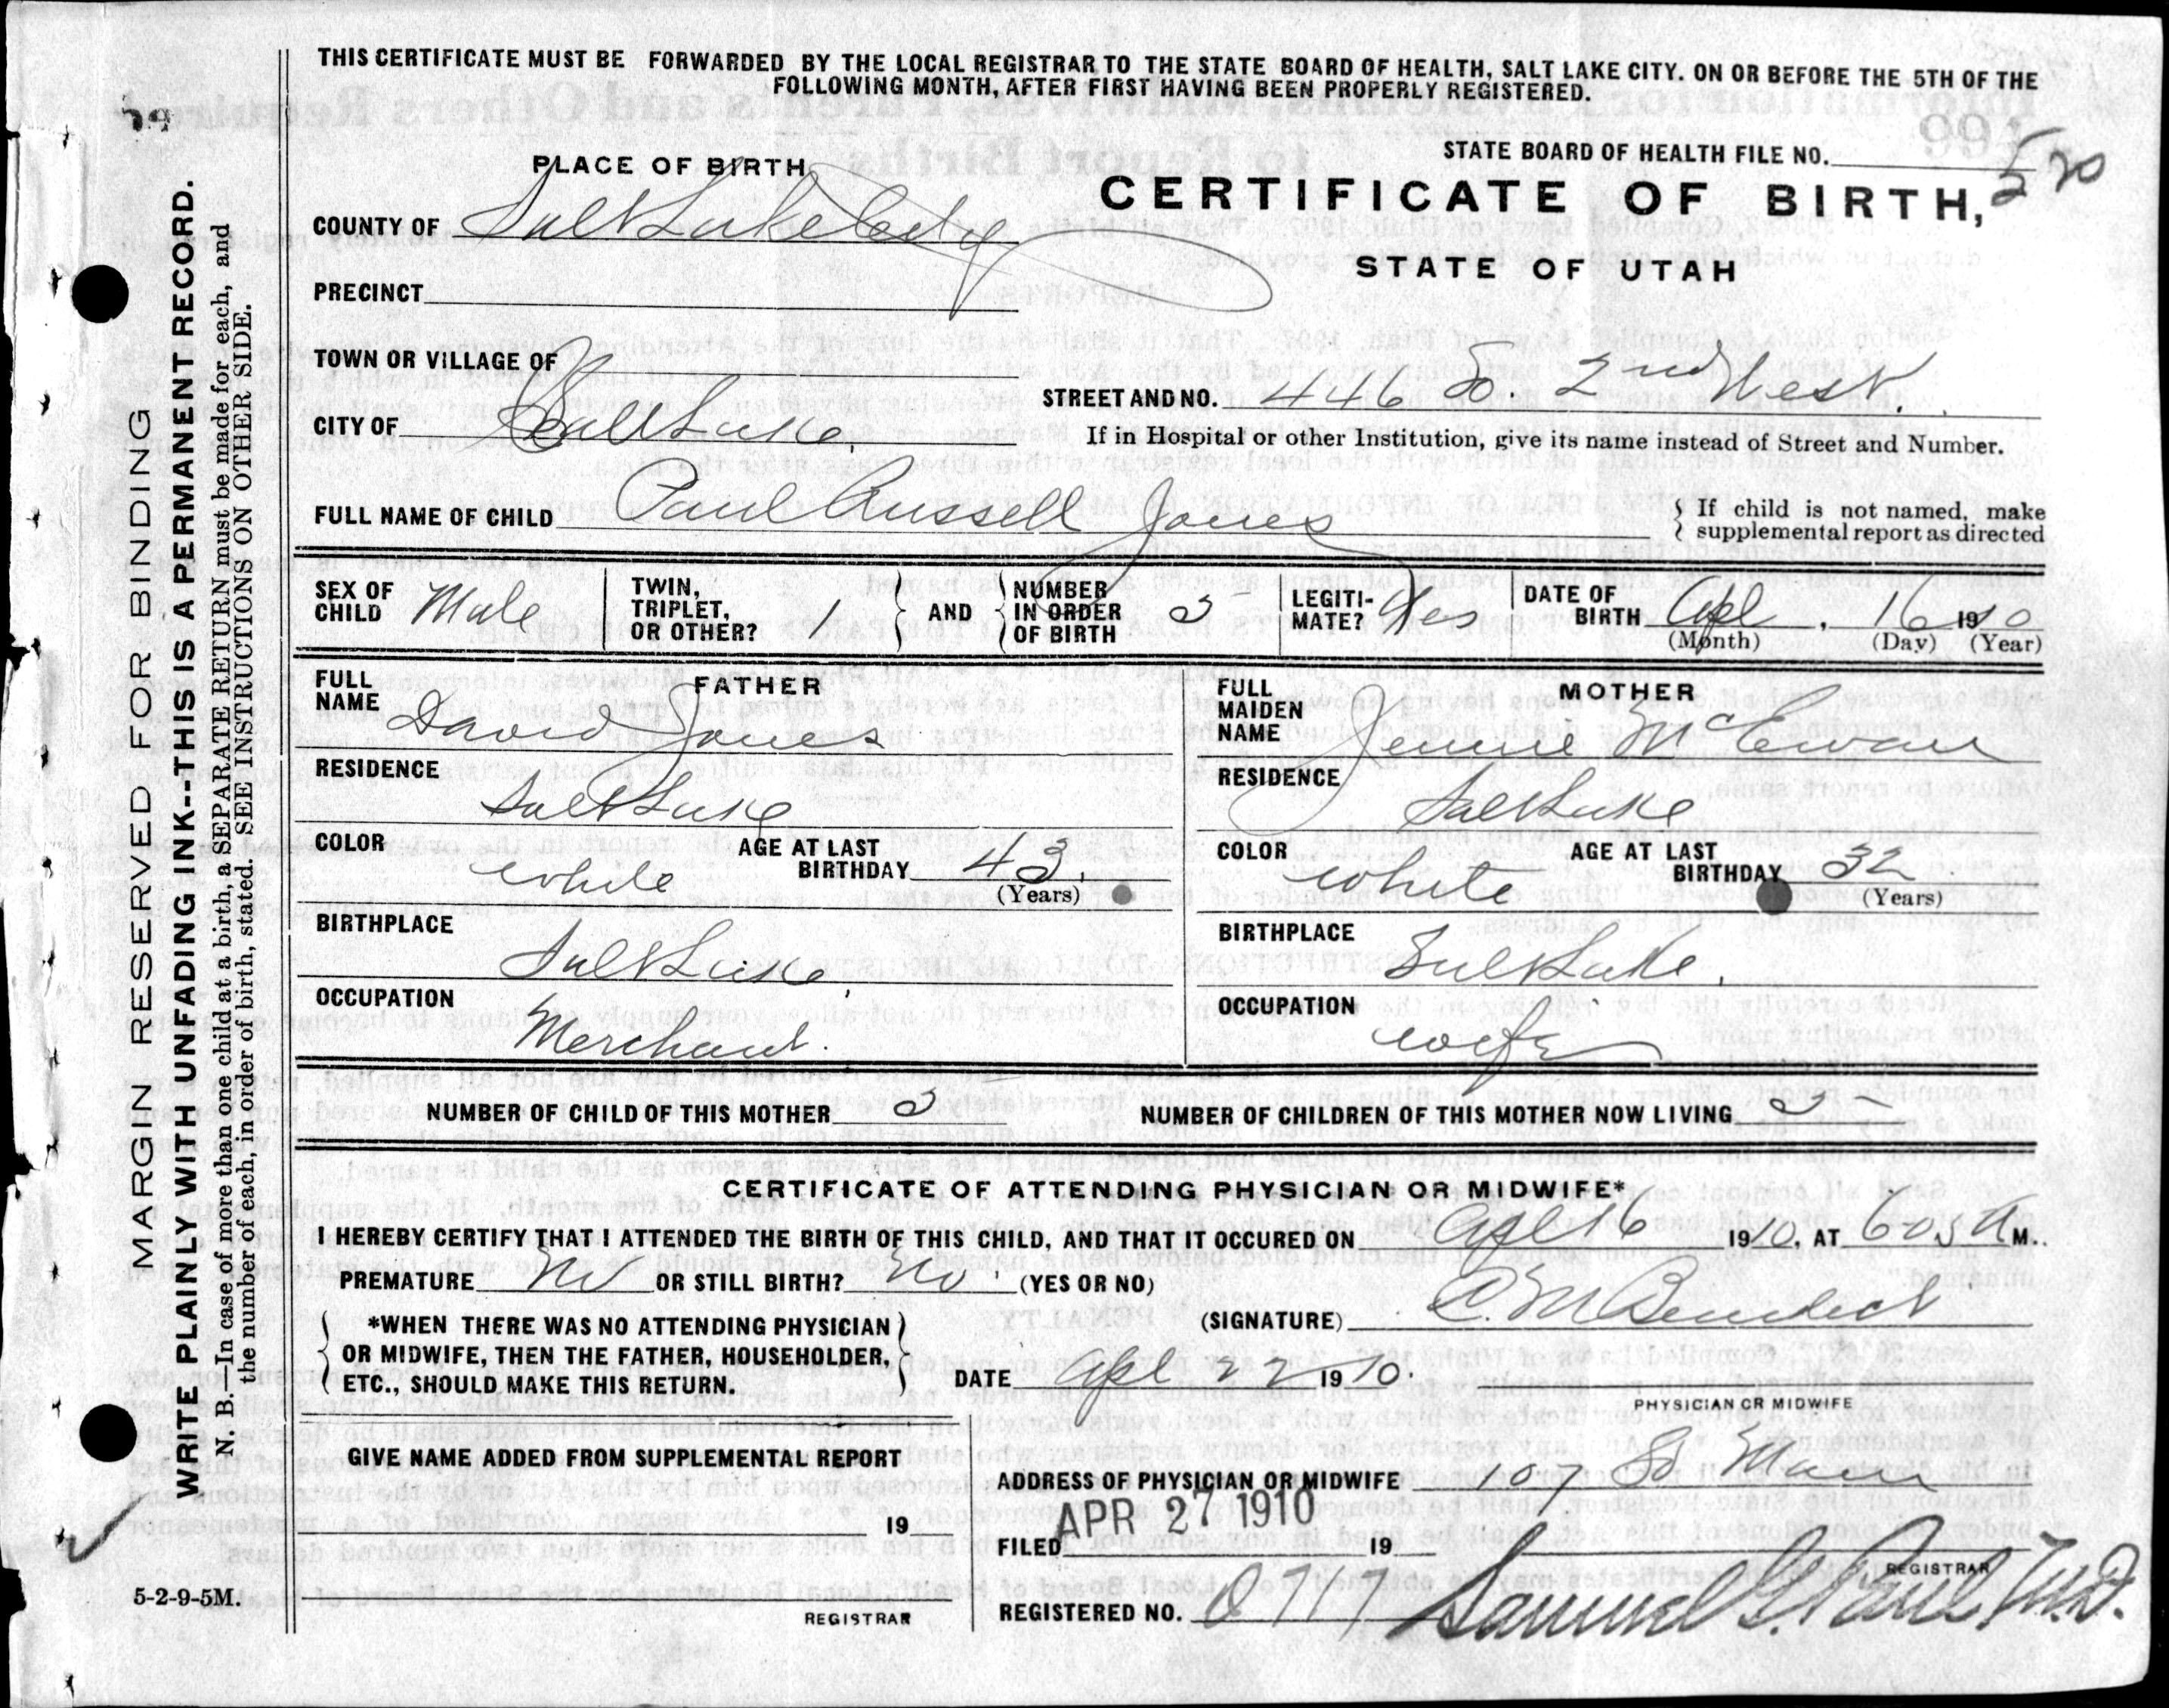 THIS CERTIFICATE MUST BE FORWARDED BY THE LOCAL REGISTRAR TO THE STATE BOARD OF HEALTH, SALT LAKE CITY. ON OR BEFORE THE 5TH OF THE
FOLLOWING MONTH, AFTER FIRST HAVING BEEN PROPERLY REGISTERED.
MARGIN RESERVED FOR BINDING
WRITE PLAINLY WITH UNFADING INK--THIS IS A PERMANENT RECORD.
N. B.—In case of more than one child at a birth, a SEPARATE RETURN must be made for each, and
the number of each, in order of birth, stated. SEE INSTRUCTIONS ON OTHER SIDE.
PLACE OF BIRTH
STATE BOARD OF HEALTH FILE NO. 520
CERTIFICATE OF BIRTH,
STATE OF UTAH
COUNTY OF Salt Lake City
PRECINCT
TOWN OR VILLAGE OF
STREET AND NO. 446 So. 2nd West.
CITY OF Salt Lake.
If in Hospital or other Institution, give its name instead of Street and Number.
FULL NAME OF CHILD Paul Russell Jones
If child is not named, make
supplemental report as directed
SEX OF CHILD Male
TWIN, TRIPLET, OR OTHER? 1
AND NUMBER IN ORDER OF BIRTH
LEGITIMATE? Yes
DATE OF BIRTH Apl. 16 1910
(Month) (Day) (Year)
FATHER
FULL NAME David Jones
RESIDENCE
Salt Lake
COLOR white AGE AT LAST BIRTHDAY 43.
(Years)
BIRTHPLACE
Salt Lake
OCCUPATION
Merchant.
MOTHER
FULL MAIDEN NAME Jennie McEwan
RESIDENCE
Salt Lake
COLOR white AGE AT LAST BIRTHDAY 32
(Years)
BIRTHPLACE
Salt Lake.
OCCUPATION
wife
NUMBER OF CHILD OF THIS MOTHER
NUMBER OF CHILDREN OF THIS MOTHER NOW LIVING
CERTIFICATE OF ATTENDING PHYSICIAN OR MIDWIFE*
I HEREBY CERTIFY THAT I ATTENDED THE BIRTH OF THIS CHILD, AND THAT IT OCCURED ON Apl 16 1910, AT 605 A M.
PREMATURE No OR STILL BIRTH? No. (YES OR NO)
*WHEN THERE WAS NO ATTENDING PHYSICIAN
OR MIDWIFE, THEN THE FATHER, HOUSEHOLDER,
ETC., SHOULD MAKE THIS RETURN.
(SIGNATURE) C. M. Benedict
DATE Apl 22 1910.
PHYSICIAN OR MIDWIFE
GIVE NAME ADDED FROM SUPPLEMENTAL REPORT
19
REGISTRAR
ADDRESS OF PHYSICIAN OR MIDWIFE 107 So Main
APR 27 1910
FILED 19
REGISTRAR
REGISTERED NO. 0717
Samuel G. Paul, M.D.
5-2-9-5M.